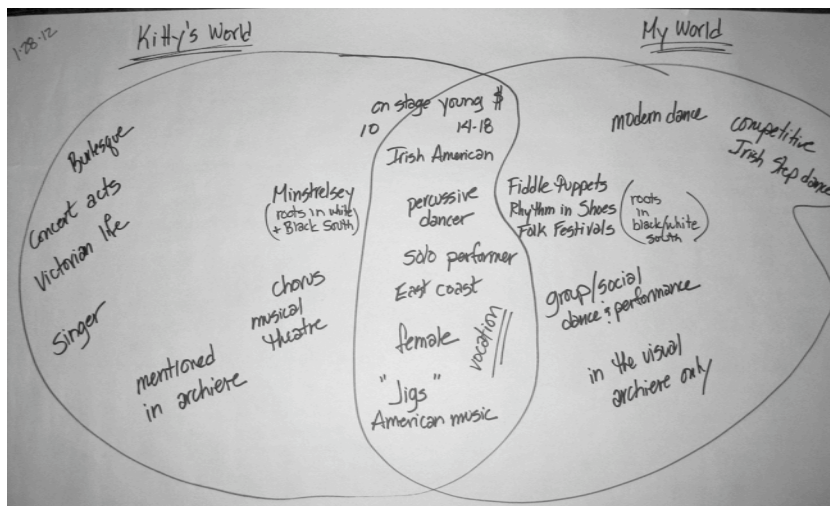 1-28-12
Kitty's World
Burlesque
Concert acts
Victorian life
Singer
Minstrelsey
(roots in white
+ Black South)
chorus
musical
theatre
mentioned
in archiere
on stage young $
10 14-18
Irish American
percussive
dancer
solo performer
East coast
female
vocation
"Jigs"
American music
My World
modern dance
competitive
Irish Step dance
Fiddle Puppets
Rhythm in Shoes
Folk Festivals
(roots
in
black/white
south)
group/social
dance & performance
in the visual
archiere only